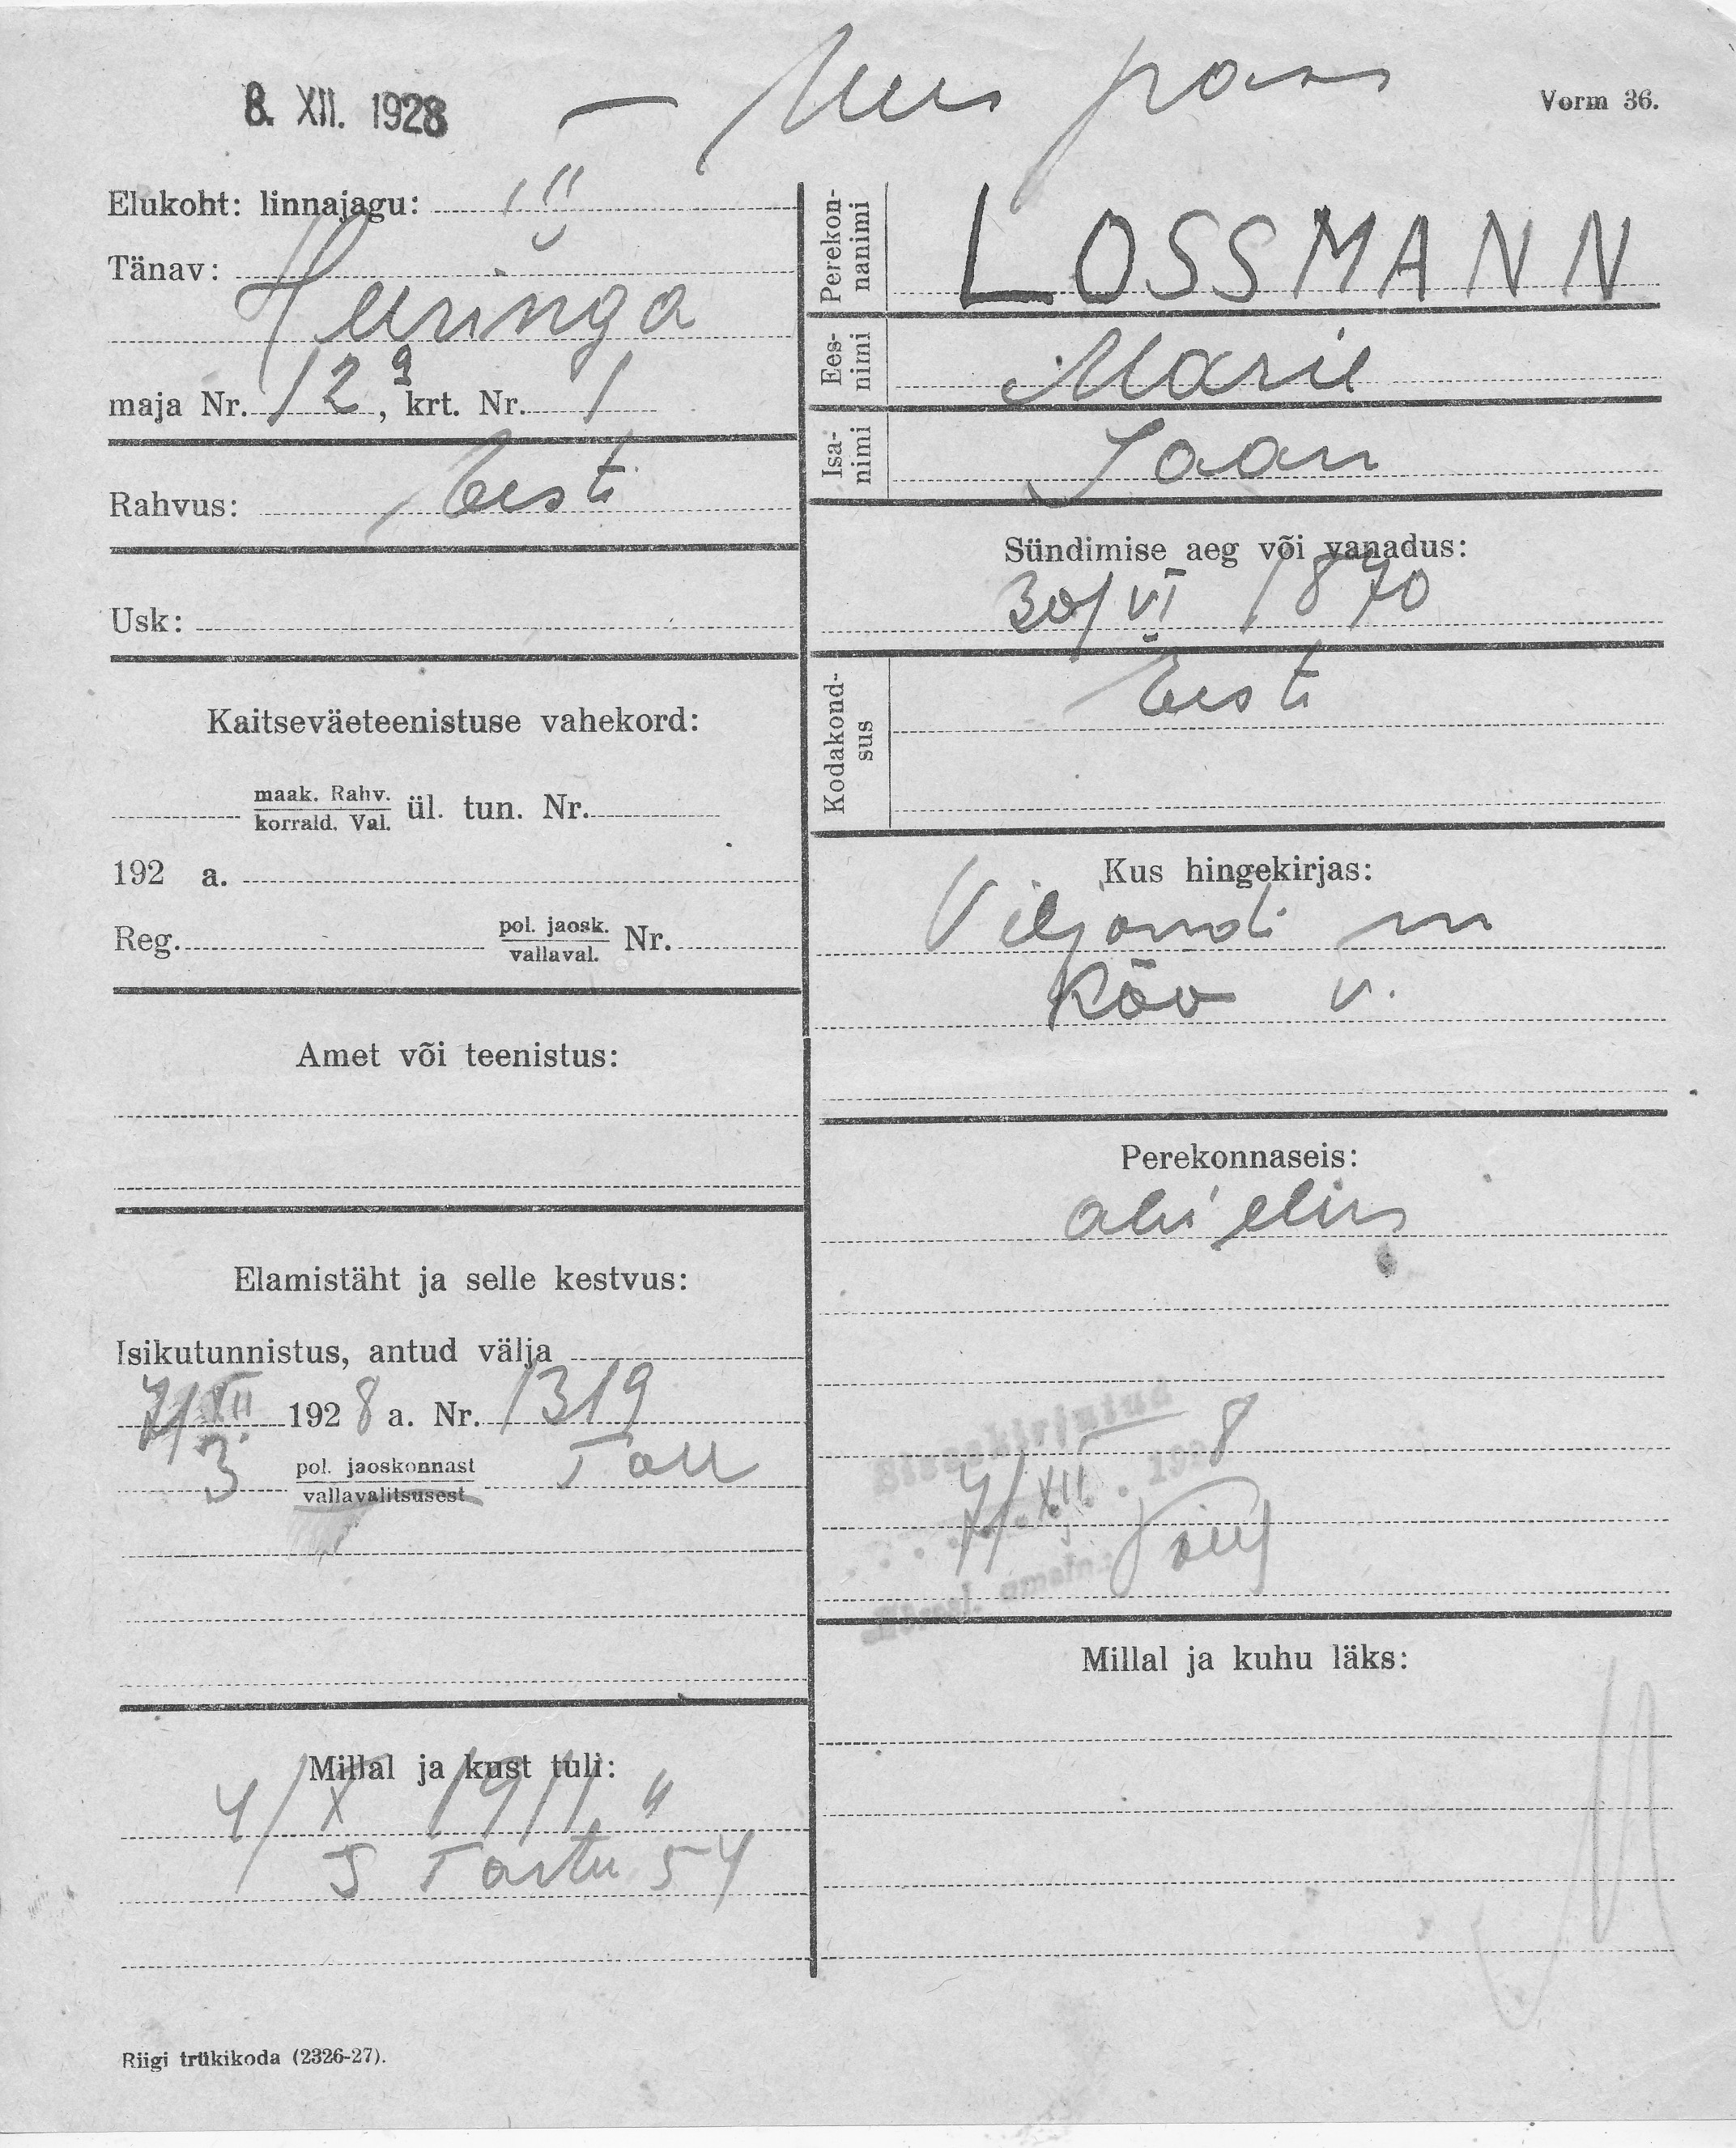 8. XII. 1928 — Uus pass
Vorm 36.
Elukoht: linnajagu:
Tänav:
maja Nr. 12a, krt. Nr. 1
Rahvus: Eesti
Usk:
Kaitseväeteenistuse vahekord:
maak. Rahv.
korrald. Val. ül. tun. Nr.
192 a.
Reg. pol. jaosk.
vallaval. Nr.
Amet või teenistus:
Elamistäht ja selle kestvus:
Isikutunnistus, antud välja
7/XII 1928 a. Nr. 1319
3. pol. jaoskonnast Tall
vallavalitsusest
Millal ja kust tuli:
4/X 1911 "
Tartu 54
Riigi trükikoda (2326-27).
Perekon-
nanimi LOSSMANN
Ees-
nimi Marie
Isa-
nimi Jaan
Sündimise aeg või vanadus:
30/VI 1870
Kodakond-
sus Eesti
Kus hingekirjas:
Viljandi m
Kõo v.
Perekonnaseis:
abielus
Sissekirjutud
7/XII 1928
ametn.
Millal ja kuhu läks: